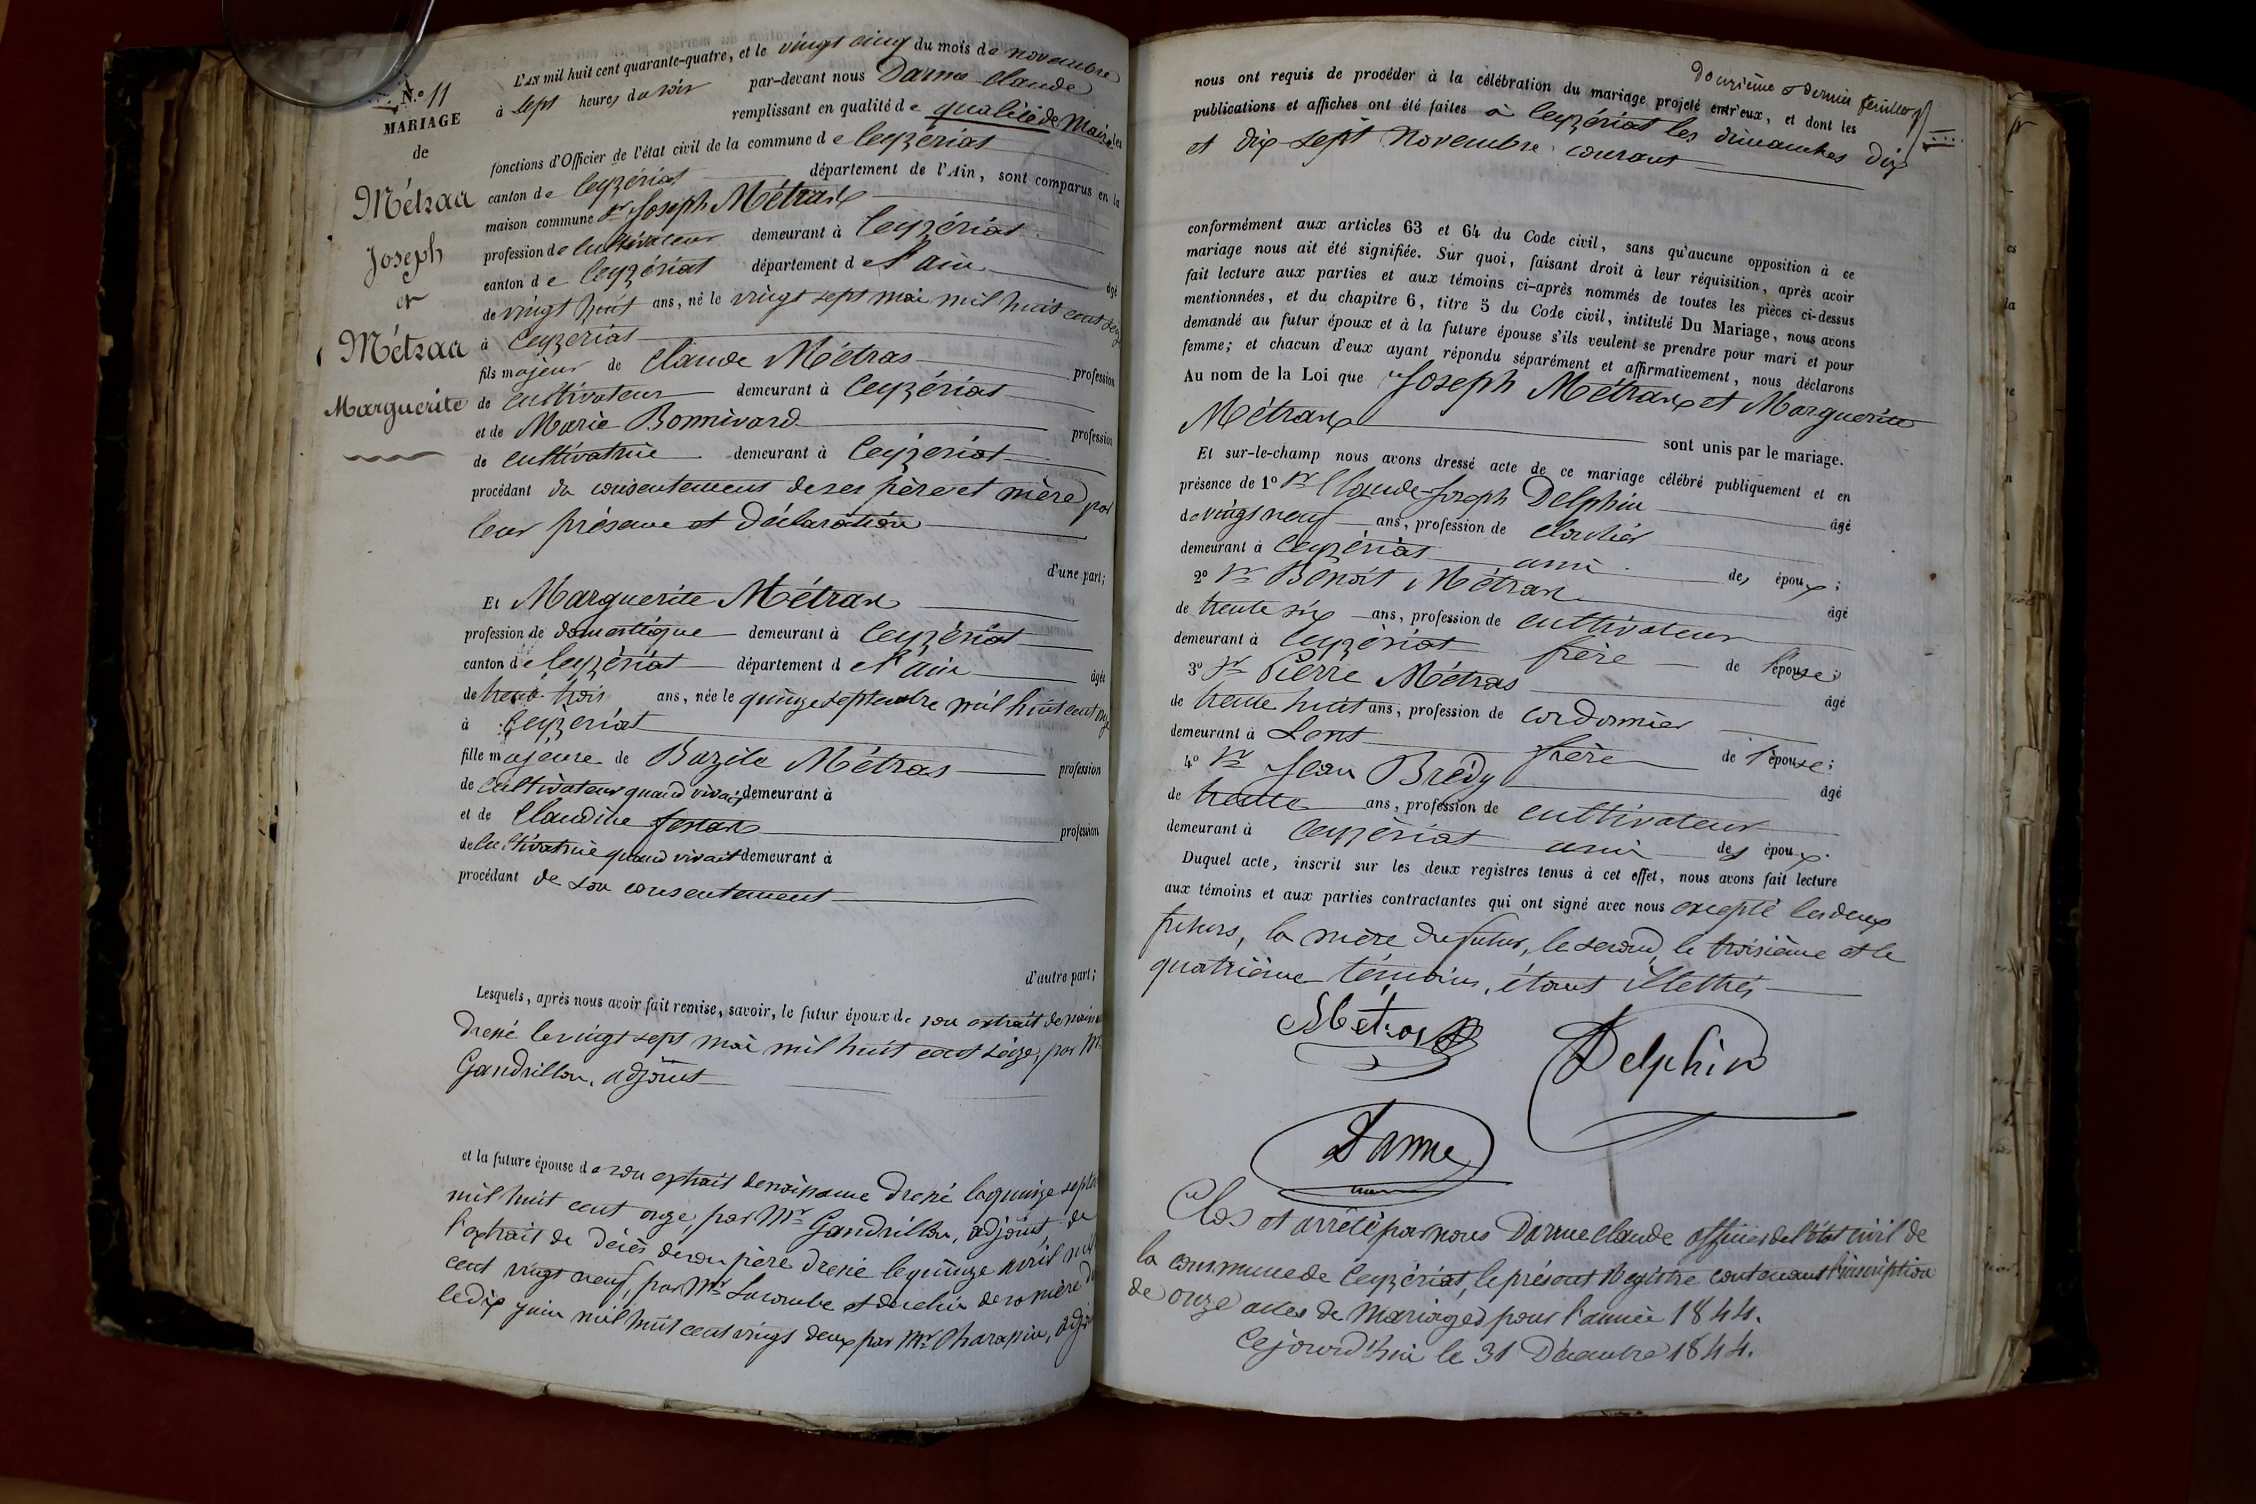 N.º 11
MARIAGE
de
Métraa
Joseph
et
Métraa
Marguerite
L'AN mil huit cent quarante-quatre, et le vingt cinq du mois de novembre
à sept heures du soir par-devant nous Darme Claude
remplissant en qualité de qualité de Maire les
fonctions d'Officier de l'état civil de la commune de Ceyzériat
canton de Ceyzériat département de l'Ain, sont comparus en la
maison commune Sr Joseph Métrax
profession de cultivateur demeurant à Ceyzériat
canton de Ceyzériat département de l'ain âgé
de vingt huit ans, né le vingt sept mai mil huit cent seize
à Ceyzeriat
fils majeur de Claude Métras profession
de cultivateur demeurant à Ceyzériat
et de Marie Bonnivard profession
de cultivatrice demeurant à Ceyzeriat
procédant du consentement de ses père et mère par
leur présence et déclaration
d'une part;
Et Marguerite Métrax
profession de domestique demeurant à Ceyzériat
canton de Ceyzériat département de l'ain âgée
de trente trois ans, née le quinze septembre mil huit cent onze
à Ceyzeriat
fille majeure de Bazile Métras profession
de cultivateur quand vivait demeurant à
et de Claudine profession
de cultivatrice quand vivait demeurant à
procédant de son consentement
d'autre part;
Lesquels, après nous avoir fait remise, savoir, le futur époux de son extrait de
dressé le vingt sept mai mil huit cent seize, par Mr
Gandrillon, adjoint
et la future épouse de son extrait de naissance dressé le quinze
mil huit cent onze, par Mr Gandrillon, adjoint, de
l'extrait de décès de son père dressé le quinze avril
cent vingt neuf, par Mr Lacombe et de celui de sa mère
le dix juin mil huit cent vingt deux par Mr Charassin,
Douzième et dernier feuillet
nous ont requis de procéder à la célébration du mariage projeté entr'eux, et dont les
publications et affiches ont été faites à Ceyzériat les dimanches dix
et dix sept Novembre courant
conformément aux articles 63 et 64 du Code civil, sans qu'aucune opposition à ce
mariage nous ait été signifiée. Sur quoi, faisant droit à leur réquisition, après avoir
fait lecture aux parties et aux témoins ci-après nommés de toutes les pièces ci-dessus
mentionnées, et du chapitre 6, titre 5 du Code civil, intitulé Du Mariage, nous avons
demandé au futur époux et à la future épouse s'ils veulent se prendre pour mari et pour
femme; et chacun d'eux ayant répondu séparément et affirmativement, nous déclarons
Au nom de la Loi que Joseph Métrax et Marguerite
Métrax sont unis par le mariage.
Et sur-le-champ nous avons dressé acte de ce mariage célébré publiquement et en
présence de 1º Sr Claude-Joseph Delphin âgé
de vingt neuf ans, profession de cloutier
demeurant à Ceyzériat ami des époux;
2º Sr Benoit Métrax âgé
de trente six ans, profession de cultivateur
demeurant à Ceyzériat frère de l'épouse;
3º Sr Pierre Métras âgé
de trente huit ans, profession de cordonnier
demeurant à Lent frère de l'épouse;
4º Sr Jean Bredy âgé
de trente ans, profession de cultivateur
demeurant à Ceyzériat ami des époux.
Duquel acte, inscrit sur les deux registres tenus à cet effet, nous avons fait lecture
aux témoins et aux parties contractantes qui ont signé avec nous excepté les deux
futurs, la mère du futur, le second, le troisième et le
quatrième témoins, étant illettrés
Métras
Delphin
Darme
Clos et arrêté par nous Darme Claude officier de l'état civil de
la commune de Ceyzériat, le présent Registre contenant l'inscription
de onze actes de Mariages pour l'année 1844.
Cejourd'hui le 31 Décembre 1844.